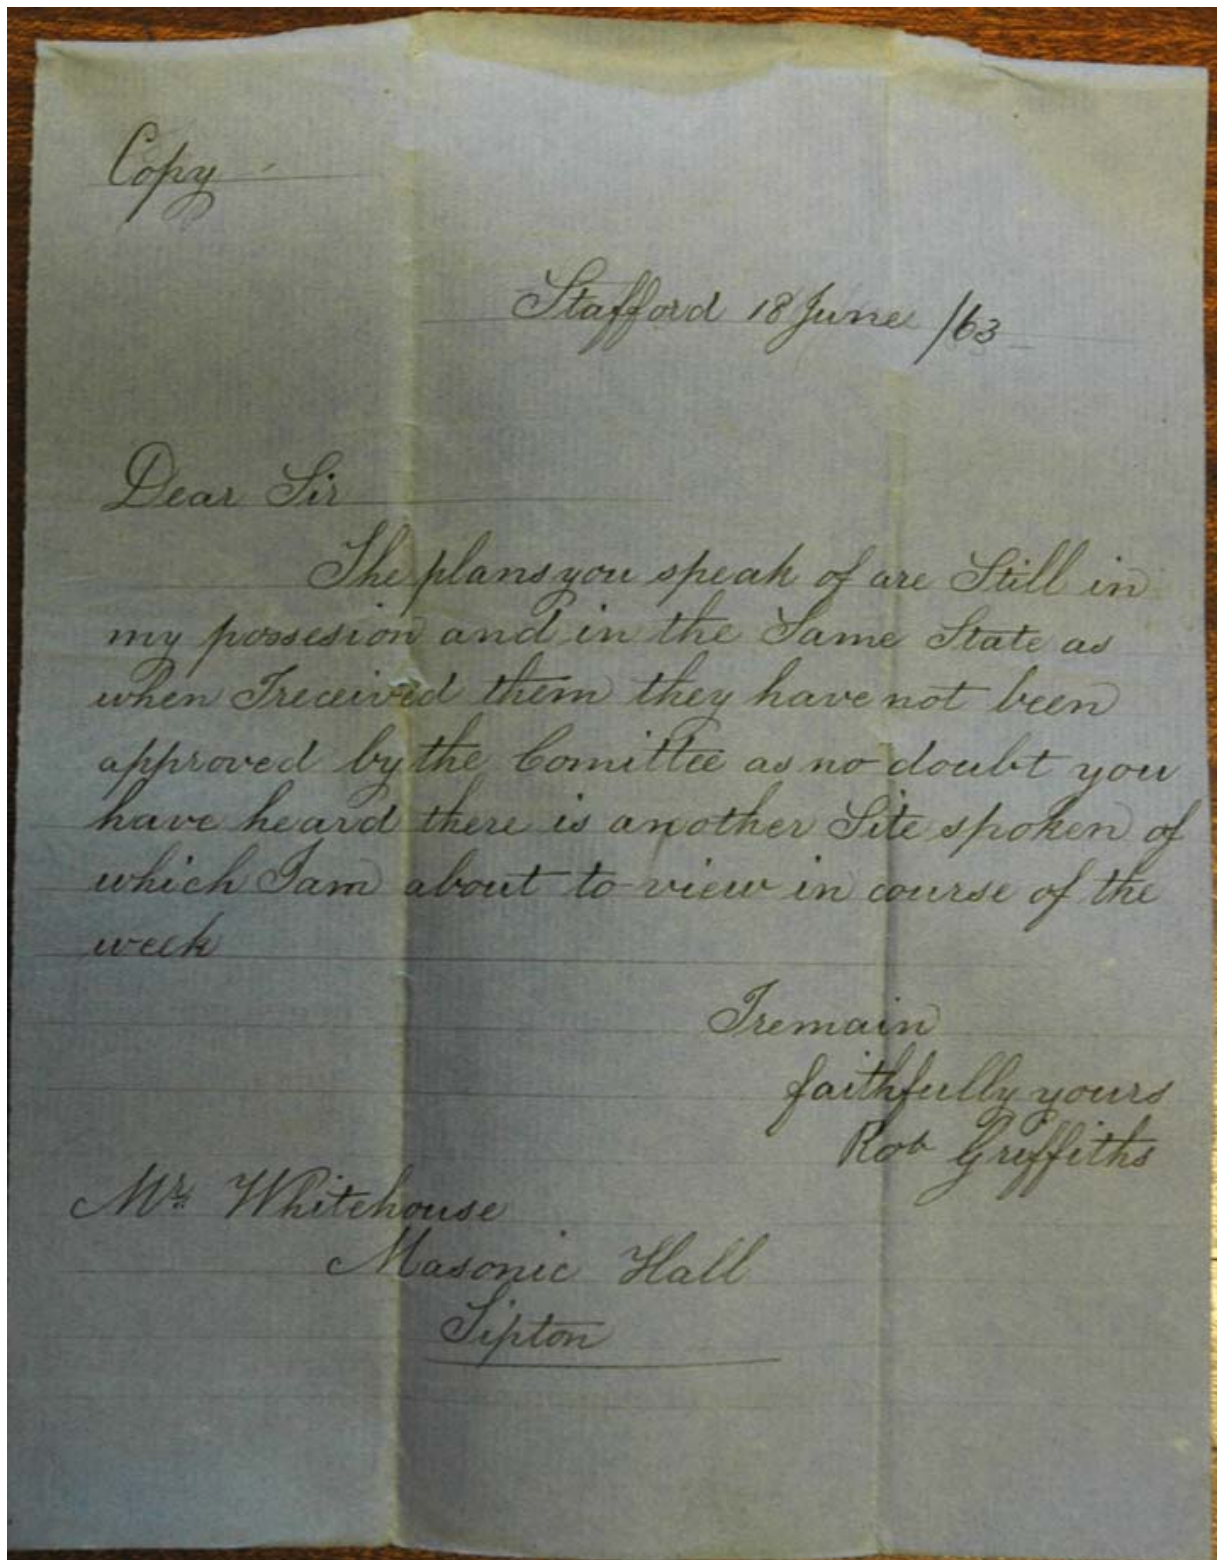 Copy
Stafford 18 June /63
Dear Sir
The plans you speak of are Still in
my possesion and in the Same State as
when I received them they have not been
approved by the Comittee as no doubt you
have heard there is another Site spoken of
which I am about to view in course of the
week
I remain
faithfully yours
Rob Griffiths
Mr. Whitehouse
Masonic Hall
Tipton